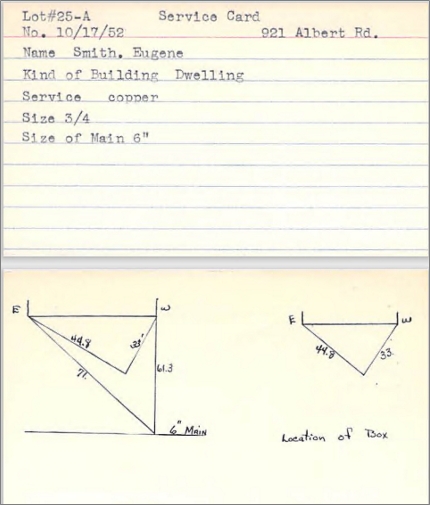 Lot#25-A Service Card
No. 10/17/52 921 Albert Rd.
Name Smith, Eugene
Kind of Building Dwelling
Service copper
Size 3/4
Size of Main 6"
E W
44.8 33'
71. 61.3
6" MAIN
E W
44.8 33.
Location of Box